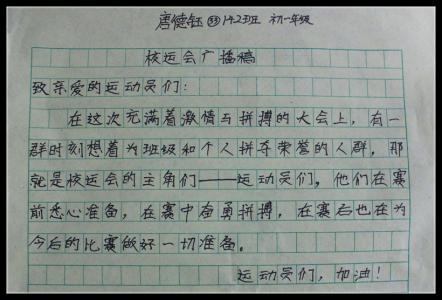 唐德钰 142班 初一年级
校运会广播稿
致亲爱的运动员们:
在这次充满着激情与拼搏的大会上，有一
群时刻想着为班级和个人拼夺荣誉的人群，那
就是校运会的主角们——运动员们，他们在赛
前悉心准备，在赛中奋勇拼搏，在赛后也在为
今后的比赛做好一切准备。
运动员们，加油！